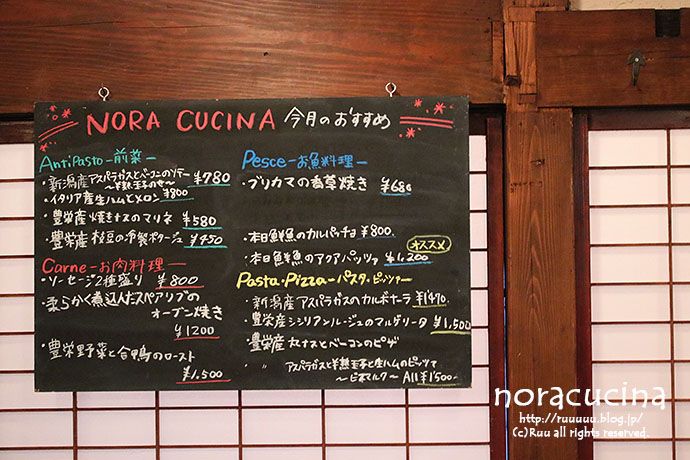 NORA CUCINA 今月のおすすめ
AntiPasto-前菜-
・新潟産アスパラガスとベーコンのソテー ¥780
～半熟玉子のせ～
・イタリア産生ハムとメロン ¥800
・豊栄産焼きナスのマリネ ¥580
・豊栄産枝豆の冷製ポタージュ ¥450
Carne-お肉料理-
・ソーセージ2種盛り ¥800
・柔らかく煮込んだスペアリブの
オーブン焼き
¥1200
・豊栄野菜と合鴨のロースト
¥1,500
Pesce-お魚料理-
・ブリカマの香草焼き ¥680
・本日鮮魚のカルパッチョ ¥800.
オススメ
・本日鮮魚のアクアパッツァ ¥1,200
Pasta・Pizza-パスタ・ピッツァ-
・新潟産アスパラガスのカルボナーラ ¥1490.
・豊栄産シシリアンルージュのマルゲリータ ¥1,500
・豊栄産丸ナスとベーコンのピザ
アスパラガスと半熟玉子と生ハムのピッツァ
～ビスマルク～ All ¥1500-
noracucina
http://ruuuuu.blog.jp/
(c)Ruu all rights reserved.